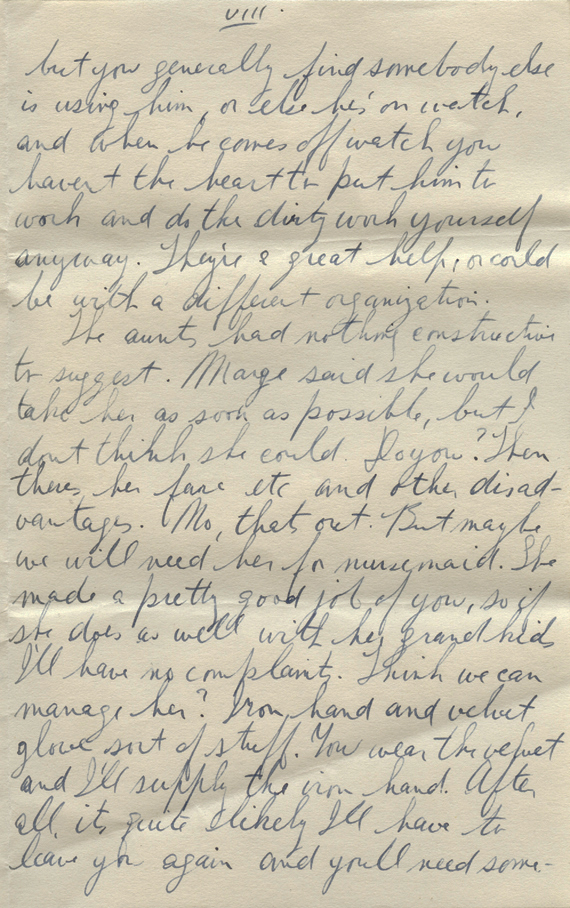 VIII.
but you generally find somebody else
is using him, or else he's on watch,
and when he comes off watch you
haven't the heart to put him to
work and do the dirty work yourself
anyway. They're a great help, or could
be with a different organization.
The aunts had nothing constructive
to suggest. Marge said she would
take her as soon as possible, but I
dont think she could. Do you? Then
theres her fare etc and other disad-
vantages. No, thats out. But maybe
we will need her for nursemaid. She
made a pretty good job of you, so if
she does as well with her grandkids
I'll have no complaints. Think we can
manage her? Iron hand and velvet
glove sort of stuff. You wear the velvet
and I'll supply the iron hand. After
all, its quite likely I'll have to
leave you again and you'll need some-